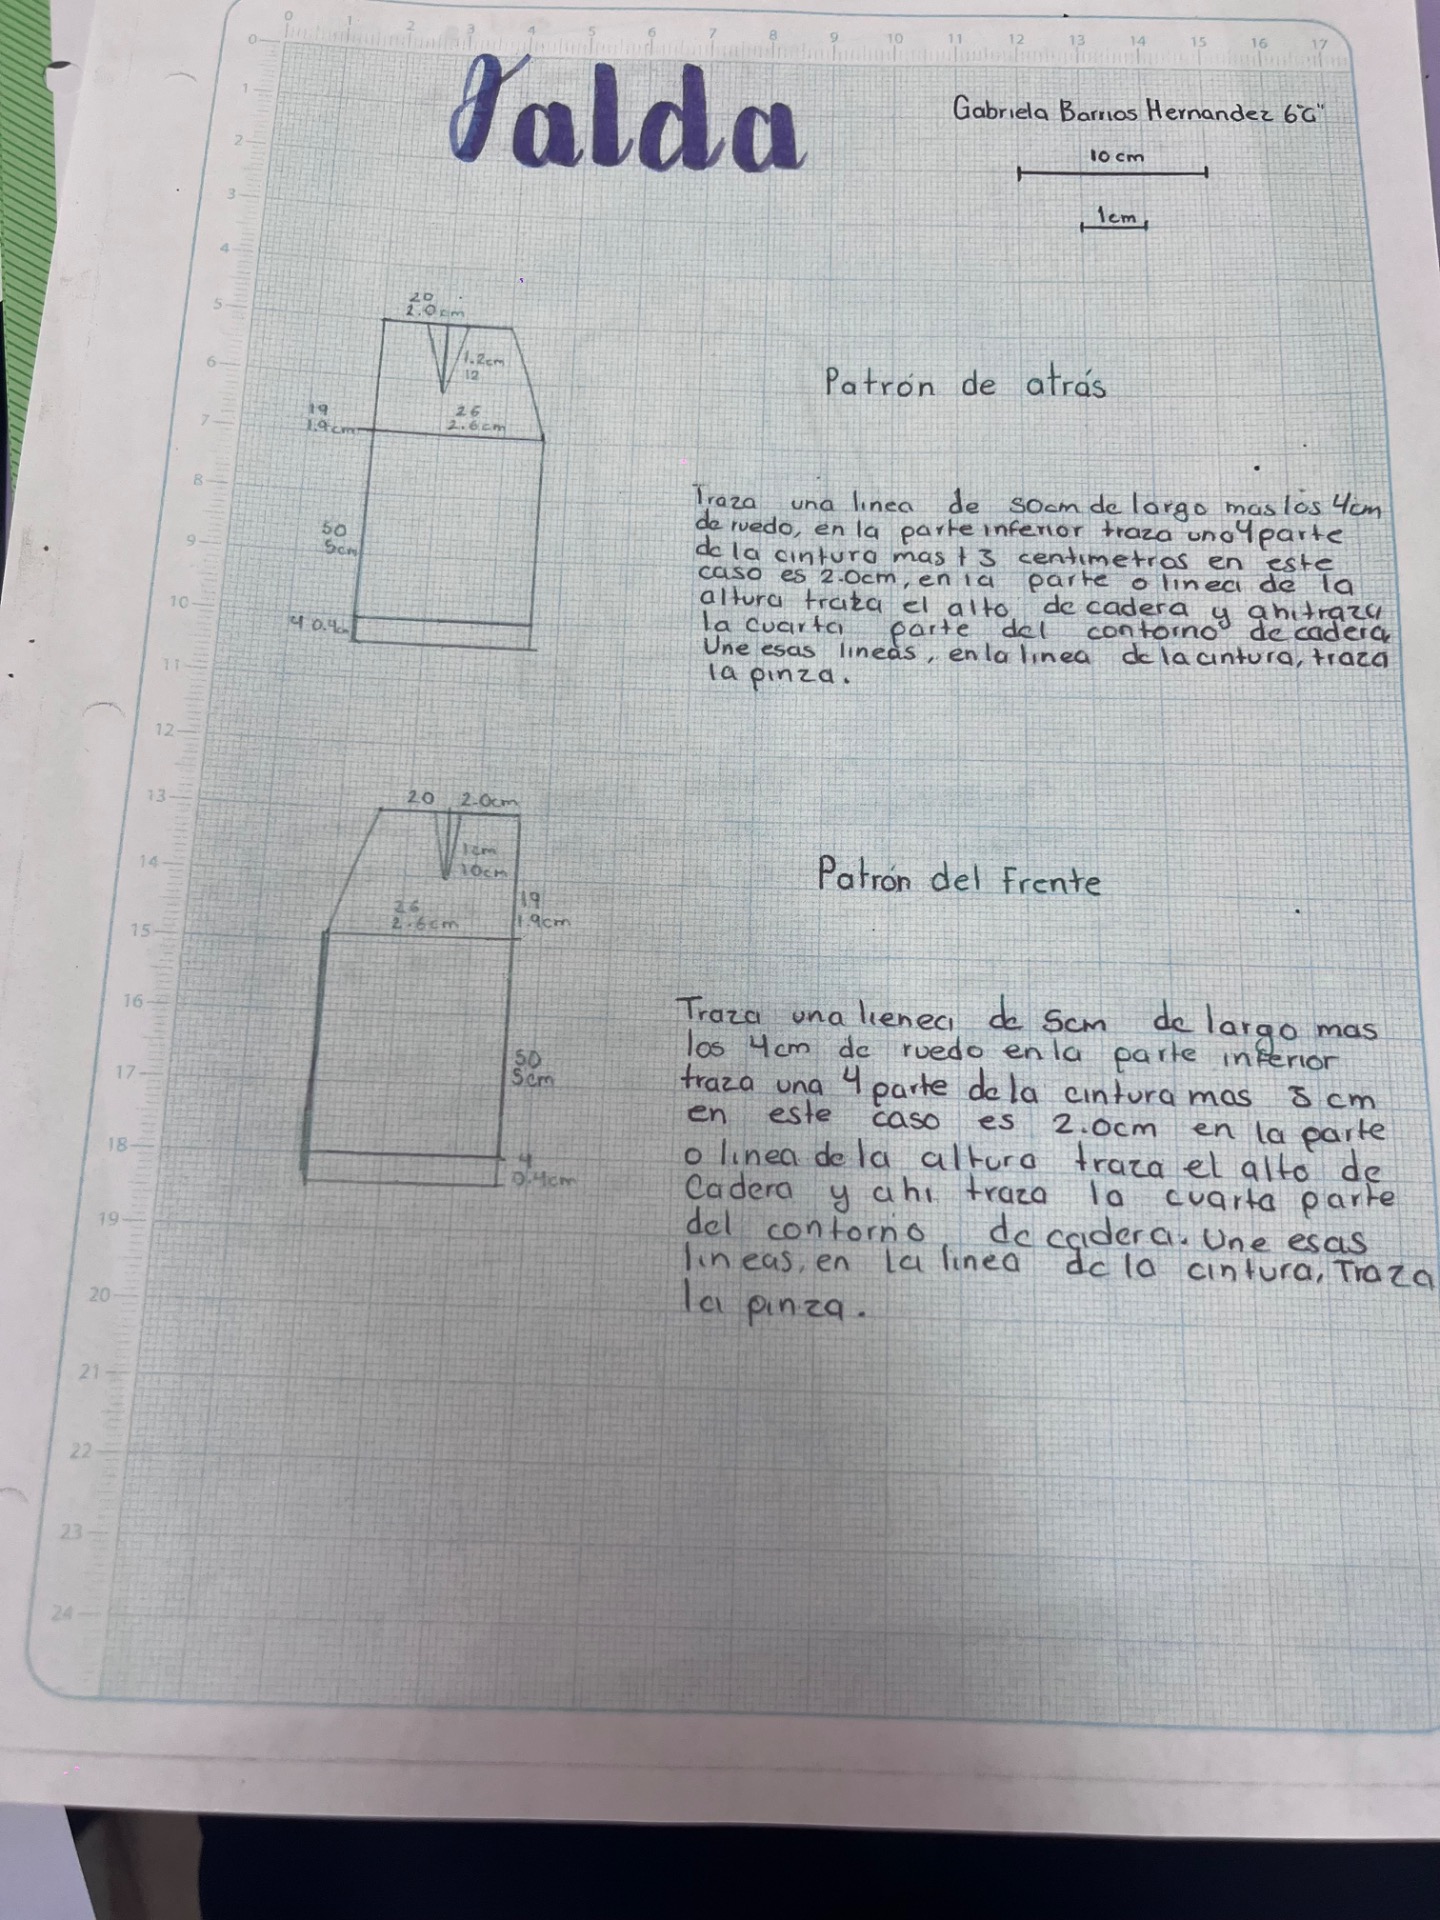 0 1 2 3 4 5 6 7 8 9 10 11 12 13 14 15 16 17
0
1
2
3
4
5
6
7
8
9
10
11
12
13
14
15
16
17
18
19
20
21
22
23
24
Falda
Gabriela Barrios Hernandez 6°G"
10 cm
1cm
20
2.0cm
1.2cm
12
19
1.9cm
26
2.6cm
50
5cm
4 0.4cm
Patrón de atrás
Traza una linea de 50cm de largo mas los 4cm
de ruedo, en la parte inferior traza una 4 parte
de la cintura mas + 3 centimetros en este
caso es 2.0cm, en la parte o linea de la
altura traza el alto de cadera y ahi traza
la cuarta parte del contorno de cadera
Une esas lineas, en la linea de la cintura, traza
la pinza.
20 2.0cm
1cm
10cm
19
1.9cm
26
2.6cm
50
5cm
4
0.4cm
Patrón del Frente
Traza una lienea de 5cm de largo mas
los 4cm de ruedo en la parte inferior
traza una 4 parte de la cintura mas cm
en este caso es 2.0cm en la parte
o linea de la altura traza el alto de
Cadera y ahi traza la cuarta parte
del contorno de cadera. Une esas
lineas, en la linea de la cintura, Traza
la pinza.